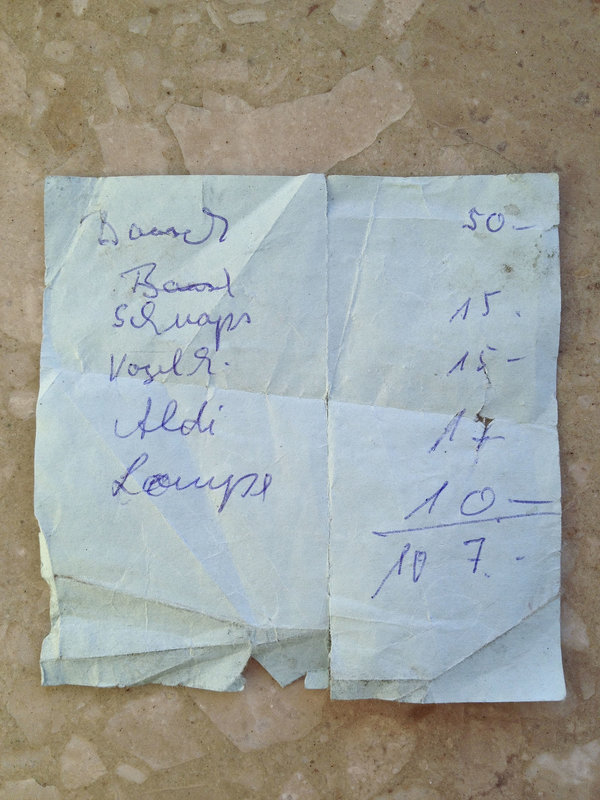 50-
Schnaps 15.
Vogelh. 15-
Aldi 17
Lampe 10-
107.-